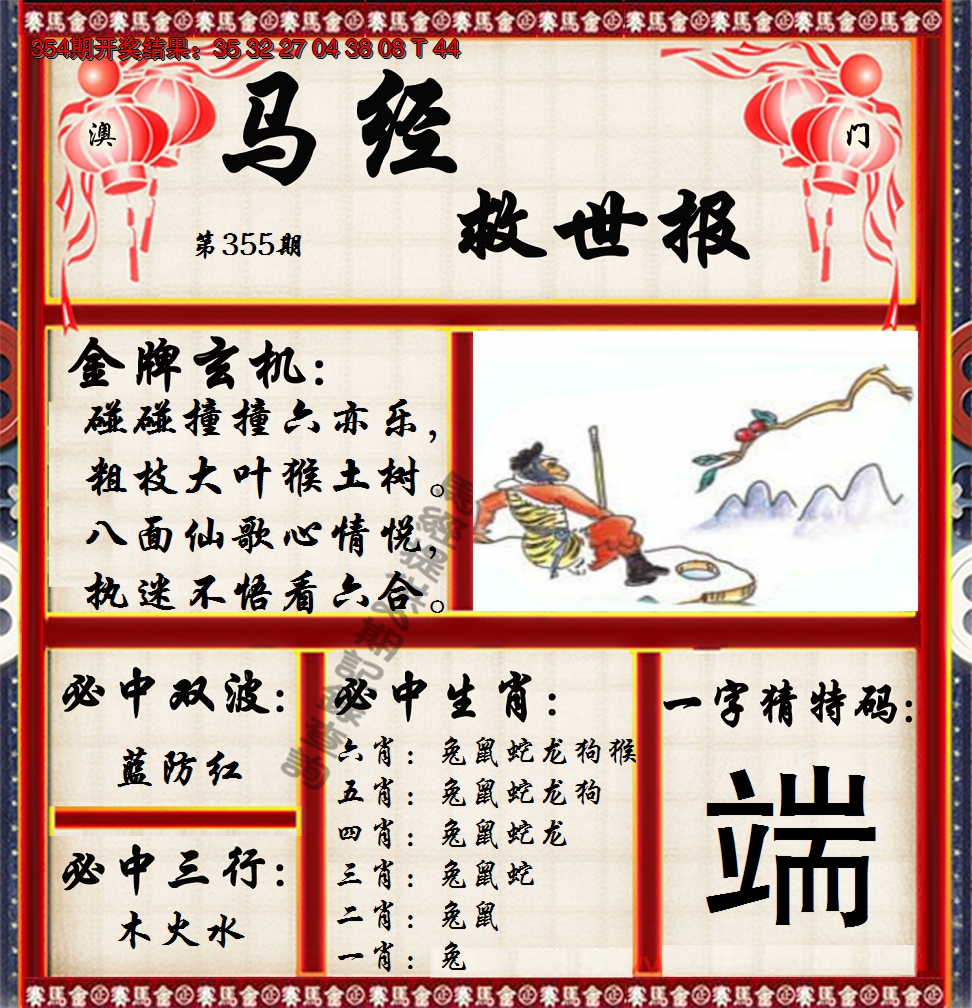 354期开奖结果：35 32 27 04 38 08 T 44
澳
门
马经
救世报
第355期
金牌玄机：
碰碰撞撞六亦乐，
粗枝大叶猴土树。
八面仙歌心情悦，
执迷不悟看六合。
必中双波：
蓝防红
必中三行：
木火水
必中生肖：
六肖：兔鼠蛇龙狗猴
五肖：兔鼠蛇龙狗
四肖：兔鼠蛇龙
三肖：兔鼠蛇
二肖：兔鼠
一肖：兔
一字猜特码：
端